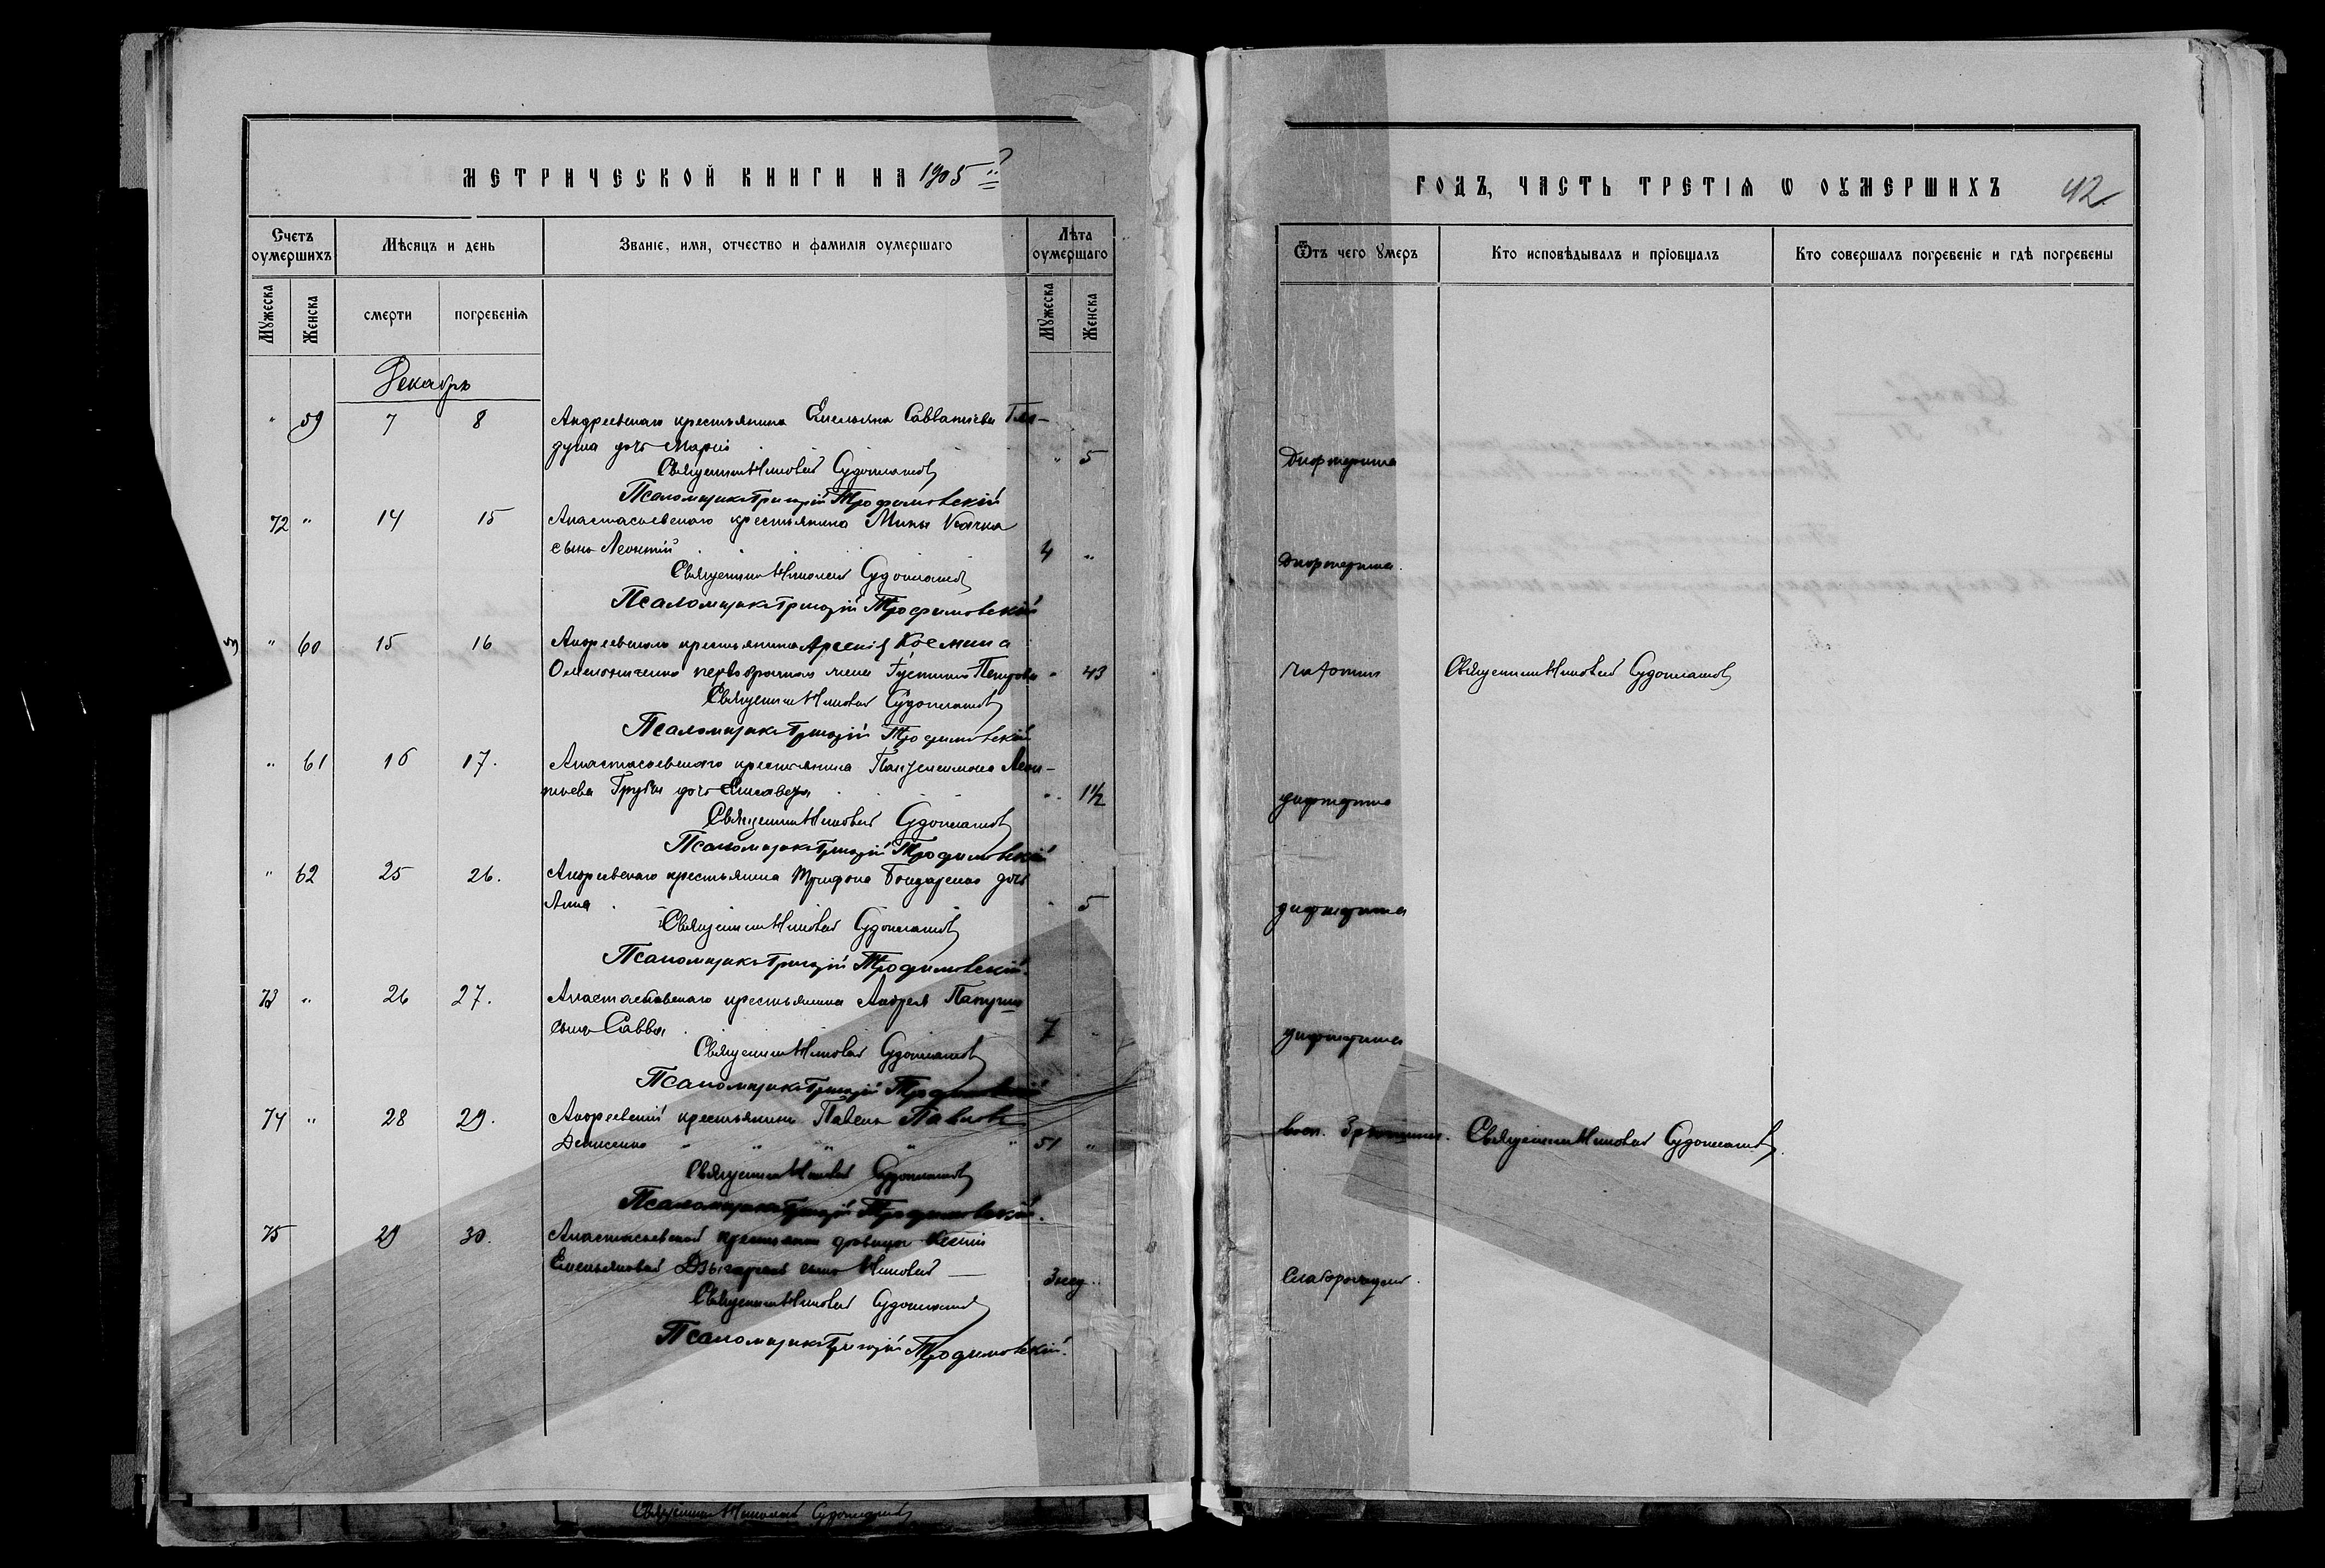 МЕТРИЧЕСКОЙ КНИГИ НА 1905 й
Счетъ оумершихъ
Мѣсяцъ и день
Званіе, имя, отчество и фамилія оумершаго
Лѣта оумершаго
Мужеска
Женска
смерти
погребенія
Мужеска
Женска
Декабрь
" 59 7 8 Андреевскаго крестьянина Емельяна Савватіева Гла-
душа дочь Марія " 5
Священникъ Николай Судоплатовъ
Псаломщикъ Григорій Трофимовскій
72 " 14 15 Анастасьевскаго крестьянина Мины Ткачка
сынъ Леонтій 4 "
Священникъ Николай Судоплатовъ
Псаломщикъ Григорій Трофимовскій
" 60 15 16 Андреевскаго крестьянина Арсенія Космина
Омельниченко первобрачная жена Іустина Петрова " 43
Священникъ Николай Судоплатовъ
Псаломщикъ Григорій Трофимовскій
" 61 16 17. Анастасьевскаго крестьянина Пантелеимона Леон-
тьева Грубы дочь Елисавета " 1 1/2
Священникъ Николай Судоплатовъ
Псаломщикъ Григорій Трофимовскій
" 62 25 26. Андреевскаго крестьянина Трифона Бондаренко дочь
Анна " 5
Священникъ Николай Судоплатовъ
Псаломщикъ Григорій Трофимовскій.
73 " 26 27. Анастасьевскаго крестьянина Андрея
сынъ Савва 7 "
Священникъ Николай Судоплатовъ
Псаломщикъ Григорій Трофимовскій
74 " 28 29. Андреевскій крестьянинъ Павелъ Павловъ
Денисенко " " " " " 51 "
Священникъ Николай Судоплатовъ
Псаломщикъ Григорій Трофимовскій.
75 29 30. Анастасьевской крестьянки Ксеніи
Емельяновой сынъ Николай — 3 нед.
Священникъ Николай Судоплатовъ
Псаломщикъ Григорій Трофимовскій.
Священникъ Николай Судоплатовъ
ГОДЪ, ЧАСТЬ ТРЕТІЯ Ѡ ОУМЕРШИХЪ 42
Ѿтъ чего умеръ
Кто исповѣдывалъ и пріобщалъ
Кто совершалъ погребеніе и гдѣ погребены
Дифтерита
Дифтерита.
чахотки Священникъ Николай Судоплатовъ
дифтерита
дифтерита
дифтерита
восп. Священникъ Николай Судоплатовъ.
Слаборожден.